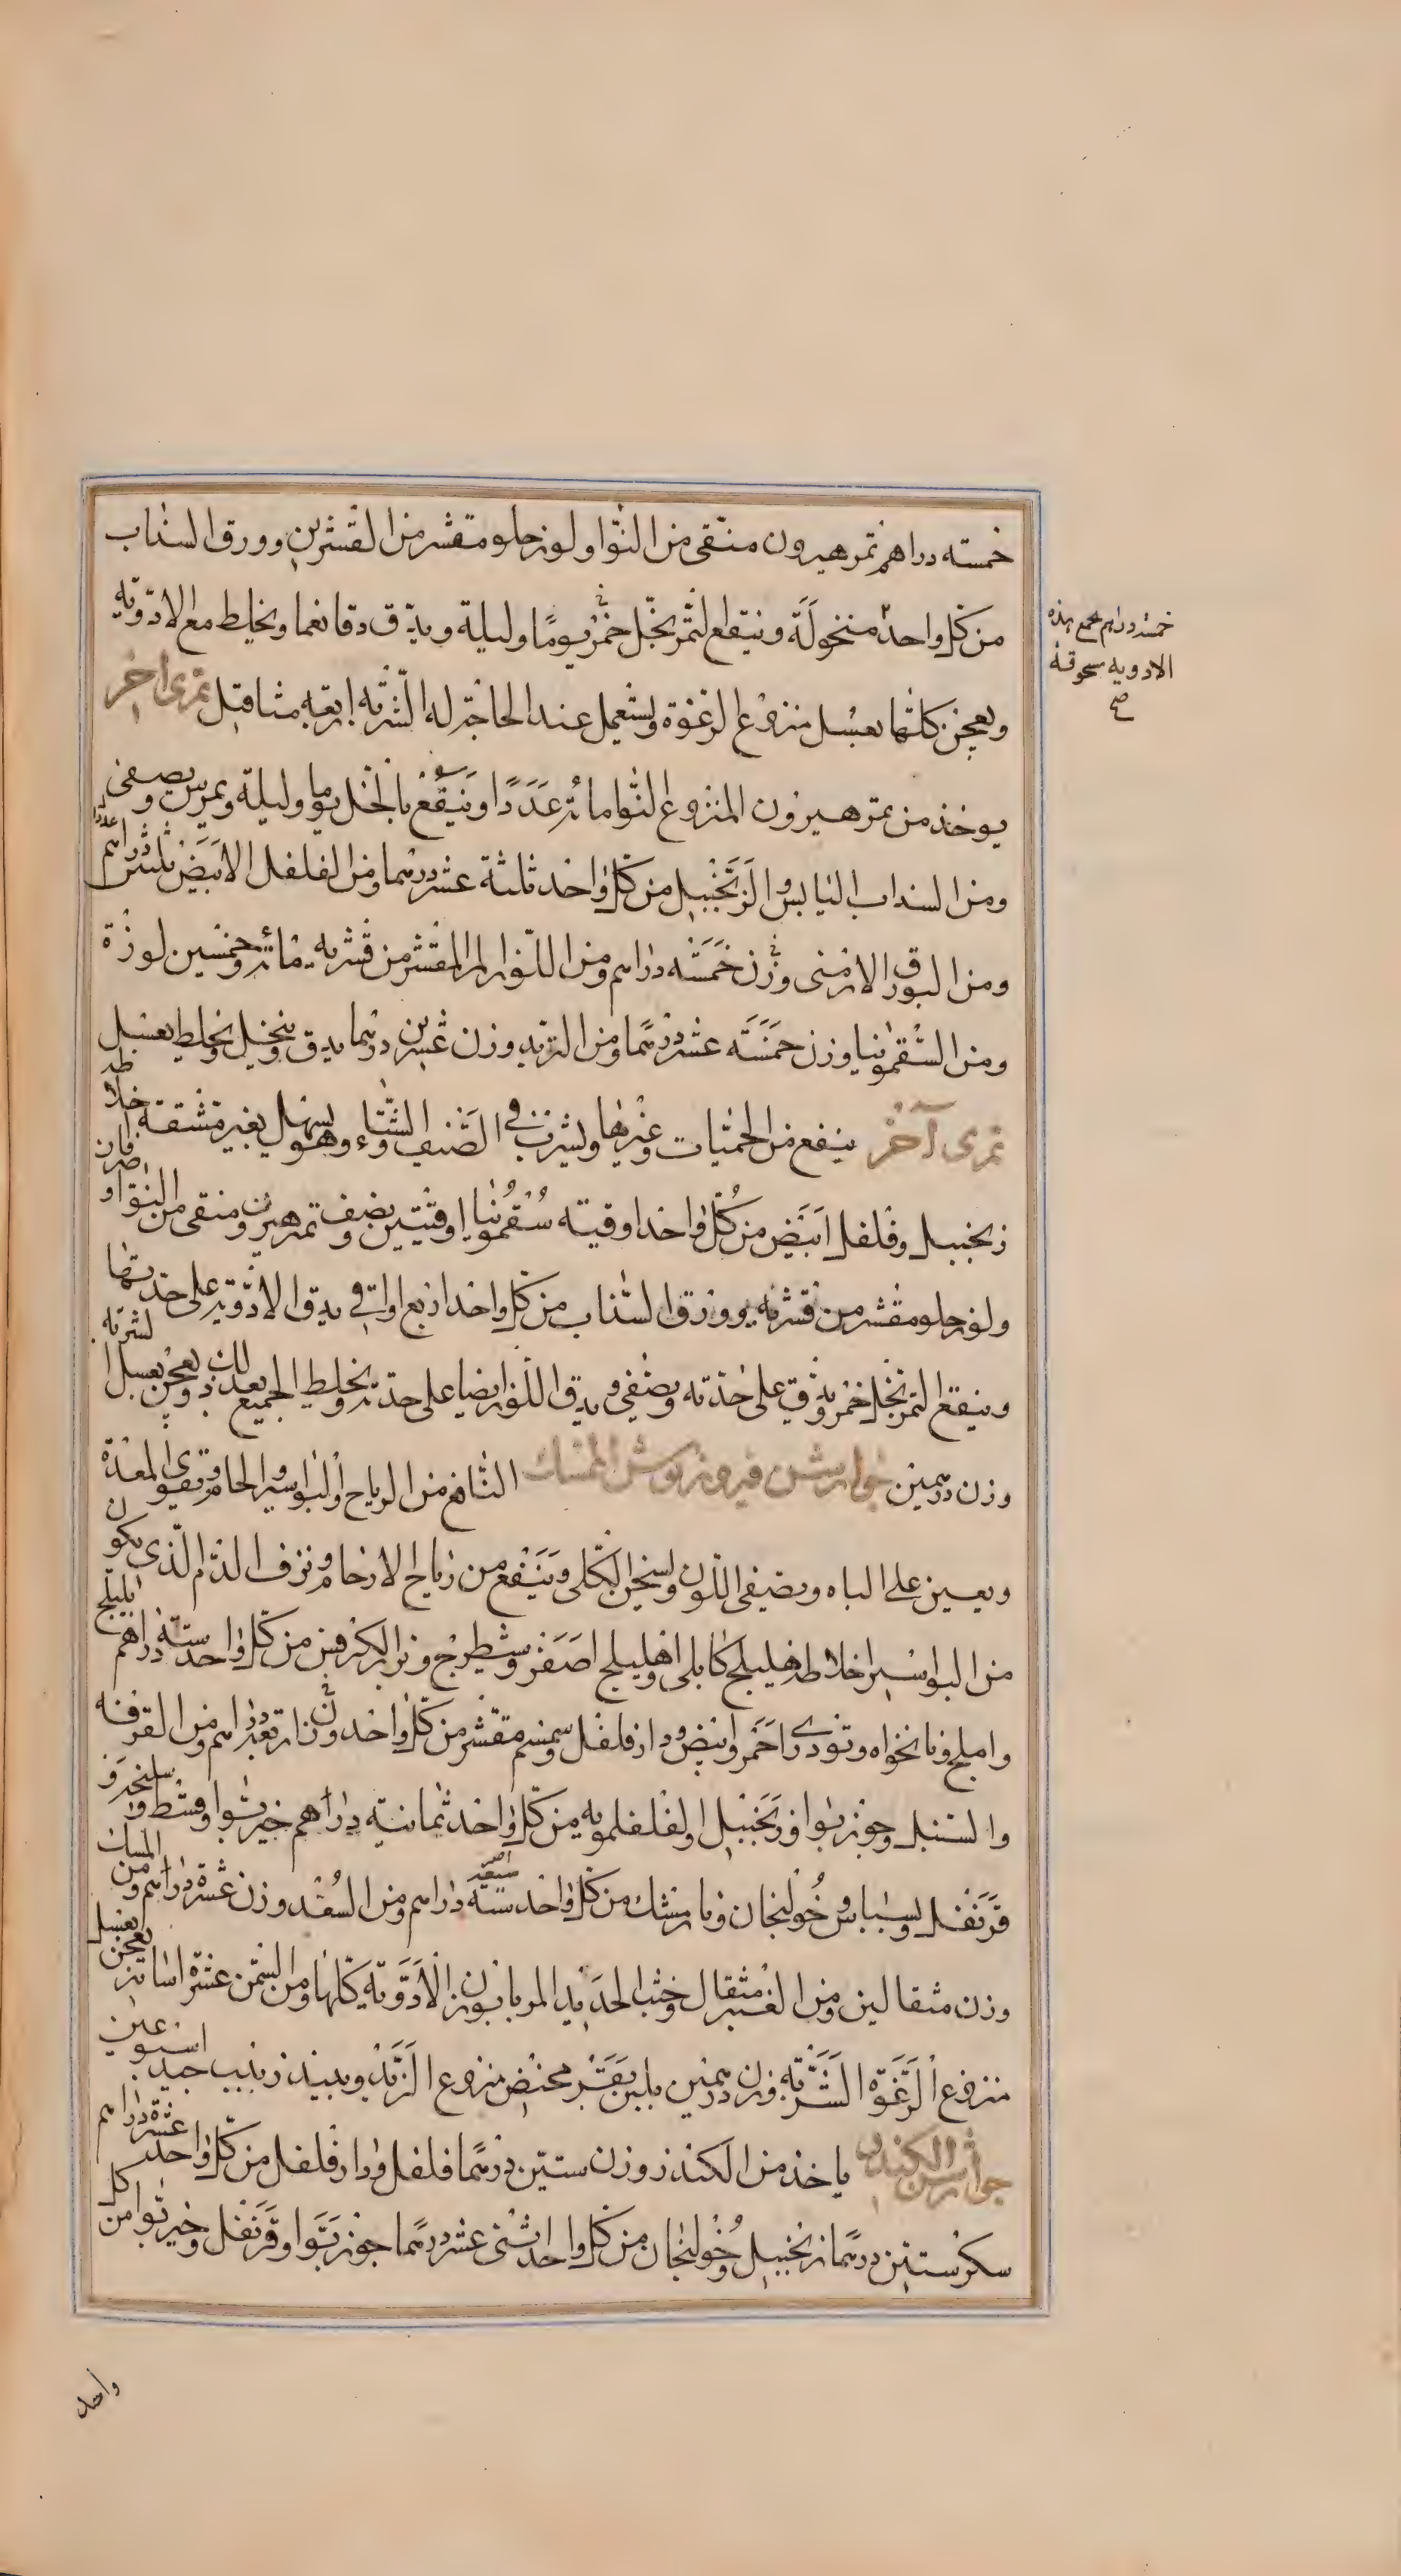 خمسته دراهم تمر هيرون منقى من النوا ولوز حلو مقشر من القشرين وورق السذاب
من كل واحد منخولة وينقع التمر بخل خمر يوما وليلة ويدق دقا نعما ويخلط مع الادوية
خمسة دراهم يجمع هذه
الادويه مسحوقة
صح
ويعجن كلها بعسل منزوع الرغوة ويستعمل عند الحاجة له الشربه اربعه مثاقيل تمرى اخر
يوخذ من تمر هيرون المنزوع النوا مائة عددا وينقع بالخل يوما وليلة ويمرس ويصفى
ومن السنداب اليابس والزنجبيل من كل واحد ثلثة عشر درهما ومن الفلفل الابيض ثلثين درهم عددا
ومن البورق الارمنى وزن خمسه دراهم ومن اللوز المر المقشر من قشريه مائة وخمسين لوزة
ومن السقمونيا وزن خمسه عشر درهما ومن التربد وزن عشرين درهما يدق وينخل ويخلط بعسل
تمرى آخر ينفع من الحميات وغيرها ويشرب في الصيف والشتاء وهو يسهل بغير مشقة اخلاطه
زنجبيل وفلفل ابيض من كل واحد اوقيه سقمونيا اوقيتين ونصف وتمر هيرون منقى من النوا و
ولوز حلو مقشر من قشريه وورق السذاب من كل واحد اربع اواق يدق الادوية على حدتها
وينقع التمر بخل خمر ويدق على حدته ويصفى ويدق اللوز ايضا على حدته ويخلط الجميع بعد ذلك ويعجن بعسل الشربه
وزن درهمين جوارشن فيروزنوش المسك النافع من الرياح والبواسير الحام ويقوى المعدة
ويعين على الباه ويصفى اللون ويسخن الكلى وينفع من رياح الارحام ونزف الدم الذى يكون
من البواسير اخلاطه هليلج كابلى وهليلج اصفر وشيطرج وبزر الكرفس من كل واحد ستة دراهم بليلج
واملج ونانخواه وتودرى احمر وابيض ودارفلفل وسمسم مقشر من كل واحد وزن اربعة دراهم ومن القرفه
والسنبل وجوزبوا وزنجبيل والفلفلمويه من كل واحد ثمانية دراهم خيربوا وقسط وسليخه و
قرنفل وبسباس وخولنجان ونارمشك من كل واحد ستة دراهم ومن السعد وزن عشرة دراهم ومن المسك
وزن مثقالين ومن العنبر مثقال وخبث الحديد المربا بوزن الادوية كلها ومن السمن عشرة اساتير يعجن بعسل
منزوع الرغوة الشربة وزن درهمين بلبن بقر مخيض منزوع الزبد ونبيذ زبيب جيد اسبوعين
جوارشن الكندر ياخذ من الكندر وزن ستين درهما فلفل ودارفلفل من كل واحد عشرة دراهم
سكر ستين درهما زنجبيل وخولنجان من كل واحد اثنى عشر درهما جوزبوا وقرنفل وخيربوا من كل
واحد